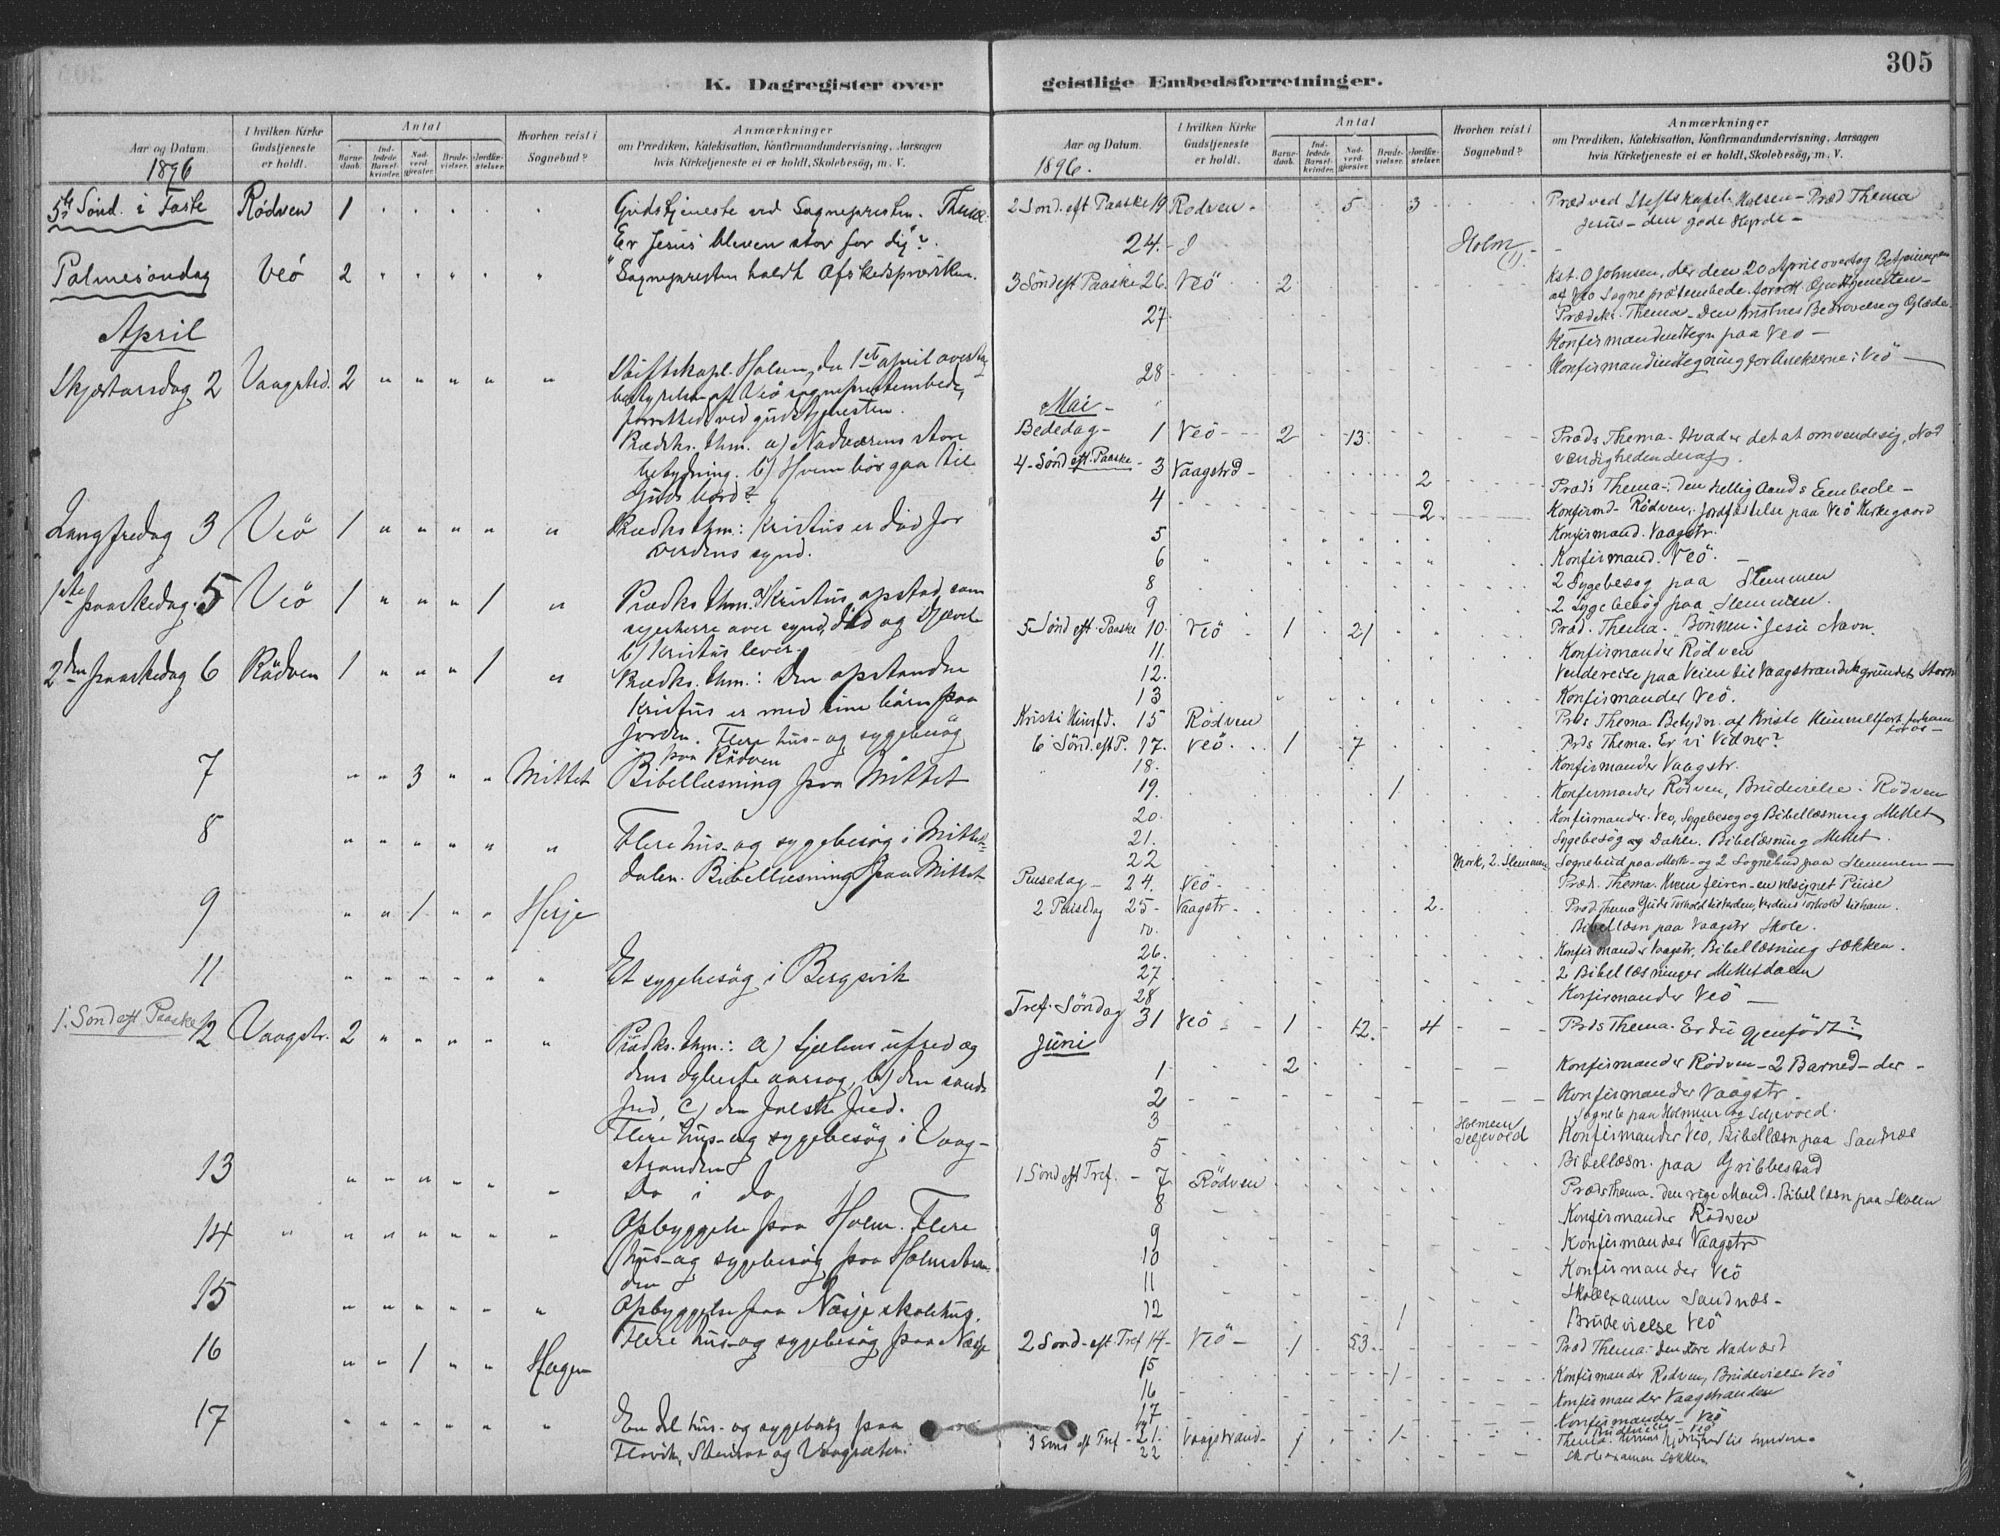 305
K. Dagregister over geistlige Embedsforretninger.
Aar og Datum.
I hvilken Kirke Gudstjeneste er holdt.
Antal
Barnedaab.
Indledede Barselkvinder.
Nadverdgjester.
Brudevielser.
Jordfæstelser.
Hvorhen reist i Sognebud?
Anmærkninger
om Prædiken, Katekisation, Konfirmandundervisning, Aarsagen
hvis Kirketjeneste ei er holdt, Skolebesøg, m. V.
1896
5te Sönd. i Faste Rödven 1 Gudstjeneste ved Sognepresten. Thema:
"Er Jesus bleven stor for dig"?
Palmesöndag Veö 2 Sognepresten holdt Afskedspræken.
April
Skjærtorsdag 2 Vaagstrd. 2 " " " " " Stiftskapl. Holsen, der 1ste april overtog
bestyrelsen af Veö sogneprestembede,
forrettede ved gudstjenesten.
Prædks. thm. a) Nadverens store
betydning. b) Hvem bör gaa til
Guds bord?
Langfredag 3 Veö 1 " " " " " Prædks. thm: Kristus er död for
verdens synd.
1ste paaskedag 5 Veö 1 " " " 1 " Prædks. thm. a) Kristus opstod som
sejerherre over synd, död og djævel
b) Kristus lever.
2den paaskedag 6 Rödven 1 " " " 1 " Prædks. thm.: Den opstandne
Kristus er med sine börn paa
jorden. Flere hus- og sygebesög
paa Rödven
7 " " 3 " " Mittet Bibellæsning paa Mittet
8 " " " " " " Flere hus- og sygebesög i Mittet-
dalen. Bibellæsning paa Mittet
9 " " 1 " " Herje
11 " " " " " " Et sygebesög i Bergsvik
1. Sönd eft Paaske 12 Vaagstr. 2 " " " " " Prædks. thm.: a) Sjælens ufred og
dens dybeste aarsag, b) den sande
fred, c) den falske fred.
Flere hus- og sygebesög i Vaag-
stranden
13 " " " " " " Do i do
14 " " " " " " " Opbyggelse paa Holm. Flere
hus- og sygebesög paa Holmstran-
den
15 " " " " " " Opbyggelse paa Næsje skolehus.
Flere hus- og sygebesög paa Næsje
16 " " 1 " " Hagen
17 " " " " " " En del hus- og sygebesög paa
Flovik, og Vaagsæter.
Aar og Datum.
I hvilken Kirke Gudstjeneste er holdt.
Antal
Barnedaab.
Indledede Barselkvinder.
Nadverdgjester.
Brudevielser.
Jordfæstelser.
Hvorhen reist i Sognebud?
Anmærkninger
om Prædiken, Katekisation, Konfirmandundervisning, Aarsagen
hvis Kirketjeneste ei er holdt, Skolebesög, m. V.
1896.
2 Sönd. eft Paaske 19 Rödven 5 3 Præd ved Stiftskapel. Holsen - Præd Thema
Jesus - den gode Hyrde -
24. Holm (1)
3 Sönd eft Paaske 26. Veö 2 Kst. O Johnsen, der den 20 April overtog Bestyrelsen
af Veö Sogneprætembede. forrett. Gudstjenesten -
Prædiks. Thema - Den Kristnes Bedrövelse og Glæde.
27. Konfirmandindtegn paa Veö -
28 Konfirmandindtegning for Anekserne i Veö -
Mai -
Bededag - 1 Veö 2 13 Præds Thema - Hvad er det at omvende sig, Nöd
vendigheden deraf
4 - Sönd eft. Paaske - 3 Vaagstrd 2 Præds Thema - Den hellig Aands Embede -
4 2 Konfirmd - Rödven. Jordfæstelse paa Veö Kirkegaard
5 Konfirmand. Vaagstr.
6 Konfirmand. Veö. -
8 2 Sygebesög paa Slemmen
9 2 Sygebesög paa Slemmen.
5 Sönd eft. Paaske 10. Veö 1 21 Præd. Thema - Bönnen i Jesu Navn.
11. Konfirmander Rödven
12. Vendereise paa Veien til Vaagstranden grundet Storm
13 Konfirmander Veö.
Kristi Himfd. 15 Rödven Præds Thema. Betydn. af Kriste Himmelfart for ham
for os -
6 Sönd. eft P. 17. Veö. 1 7 Præds Thema. Er vi Vidner?
18. Konfirmander Vaagstr.
19. 1 Konfirmander Rödven, Brudevielse i Rödven
20. Konfirmander Veö, Sygebesög og Bibellæsning Mittet
21. Sygebesög og Bibellæsning Mittet
22 Mork, 2. Slemmen Sognebud paa Mork - og 2 Sognebud paa Slemmen -
Pinsedag - 24. Veö - Præd. Thema. Hvem feirer en velsignet Pinse
2 Pinsedag 25 - Vaagstr - 2. Præd Thema Guds Forhold til Verden, Verdens Forhold til ham.
Bibellæsn paa Vaagstr Skole.
26. Konfirmander Vaagstr. Bibellæsning Sækken.
27 2 Bibellæsninger Mittetdalen
28 Konfirmander Veö -
Tref. Söndag 31 Veö 1 12. 4 Præds Thema. Er du gjenfödt?
Juni
1 2 Konfirmander Rödven - 2 Barned - der -
2 Konfirmander Vaagstr.
3 Holmem Seljevold Sogneb paa Holmem og Seljevold.
Konfirmander Veö, Bibellæsn paa Sandnæs
5 Bibellæsn. paa Gribbestad
1 Sönd eft Tref. - 7 Rödven Præds Thema. Den rige Mand. Bibellæsn paa Skolen
8 Konfirmander Rödven
9 Konfirmander Vaagstr
10 Konfirmander Veö
11 Skoleexamen Sandnæs -
12 1 Brudevielse Veö
2 Sönd - eft Tref 14 - Veö - 1 53. Præd Thema - Den store Nadverd
15 1 Konfirmander Rödven, Brudevielse Veö
16 Konfirmander Vaagstranden
17 Konfirmander - Veö
19 Brudevielse Veö
3 Sönd eft Tref - 21. Vaagstrand - 1 1 Thema: Jesus Kjærlighed til Syndere -
22 Skoleexamen Sækken